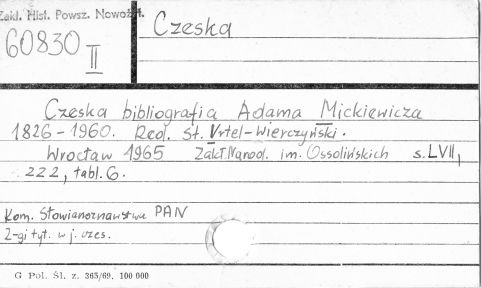 Zakł. Hist. Powsz. Nowożyt.
60830
II
Czeska
Czeska bibliografia Adama Mickiewicza
1826-1960. Red. St. Vrtel-Wierczyński.
Wrocław 1965 Zakł. Narod. im. Ossolińskich s. LVII,
222, tabl. 6.
Kom. Słowianoznawstwa PAN
2-gi tyt. w j. czes.
G Pol. Śl. z. 365/69. 100 000